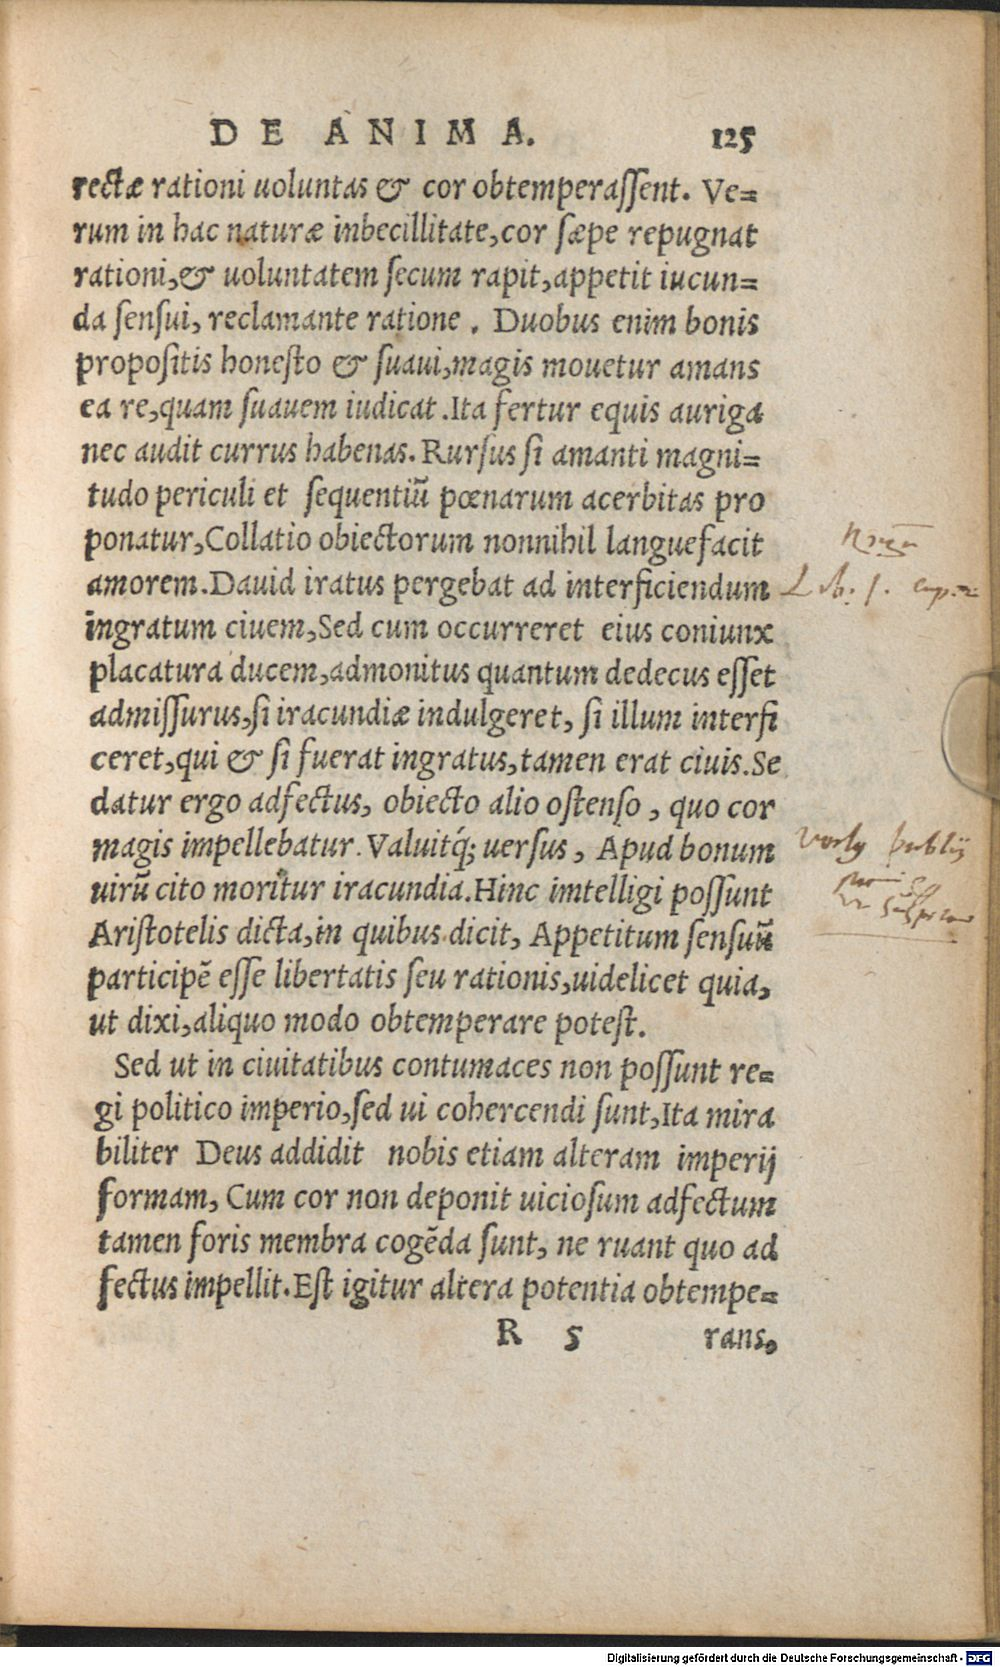 DE ANIMA. 125
rectæ rationi uoluntas & cor obtemperaſſent. Ve=
rum in hac naturæ inbecillitate,cor ſæpe repugnat
rationi,& uoluntatem ſecum rapit,appetit iucun=
da ſenſui, reclamante ratione . Duobus enim bonis
propoſitis honeſto & ſuaui,magis mouetur amans
ea re,quam ſuauem iudicat .Ita fertur equis auriga
nec audit currus habenas. Rurſus ſi amanti magni=
tudo periculi et ſequentiũ pœnarum acerbitas pro
ponatur,Collatio obiectorum nonnihil languefacit
amorem. Dauid iratus pergebat ad interficiendum
ingratum ciuem,Sed cum occurreret eius coniunx
placatura ducem,admonitus quantum dedecus eſſet
admiſſurus,ſi iracundiæ indulgeret, ſi illum interfi
ceret,qui & ſi fuerat ingratus,tamen erat ciuis.Se
datur ergo adfectus, obiecto alio oſtenſo , quo cor
magis impellebatur. Valuitq́; uerſus , Apud bonum
uirũ cito moritur iracundia.Hinc imtelligi poſſunt
Ariſtotelis dicta,in quibus dicit, Appetitum ſenſuũ
participẽ eſſe libertatis ſeu rationis,uidelicet quia,
ut dixi,aliquo modo obtemperare poteſt.
Sed ut in ciuitatibus contumaces non poſſunt re=
gi politico imperio,ſed ui cohercendi ſunt,Ita mira
biliter Deus addidit nobis etiam alteram imperij
formam, Cum cor non deponit uicioſum adfectum
tamen foris membra cogẽda ſunt, ne ruant quo ad
fectus impellit.Eſt igitur altera potentia obtempe=
R 5 rans,
Lib. 1. cap.
publij
Digitalisierung gefördert durch die Deutsche Forschungsgemeinschaft - DFG